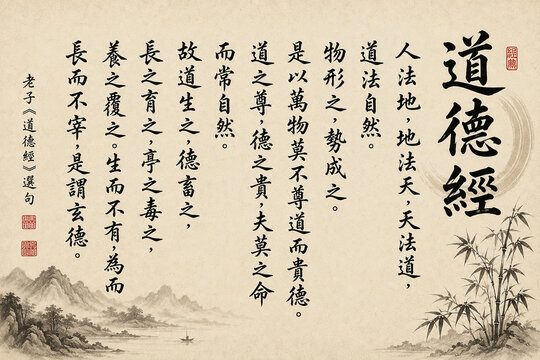 道德經
人法地，地法天，天法道，
道法自然。
物形之，勢成之。
是以萬物莫不尊道而貴德。
道之尊，德之貴，夫莫之命
而常自然。
故道生之，德畜之，
長之育之，亭之毒之，
養之覆之。生而不有，為而
長而不宰，是謂玄德。
老子《道德經》選句